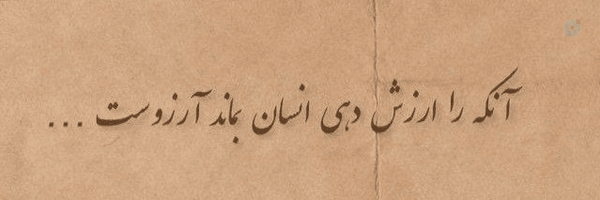 آنکه را ارزش دهی انسان بماند آرزوست ...